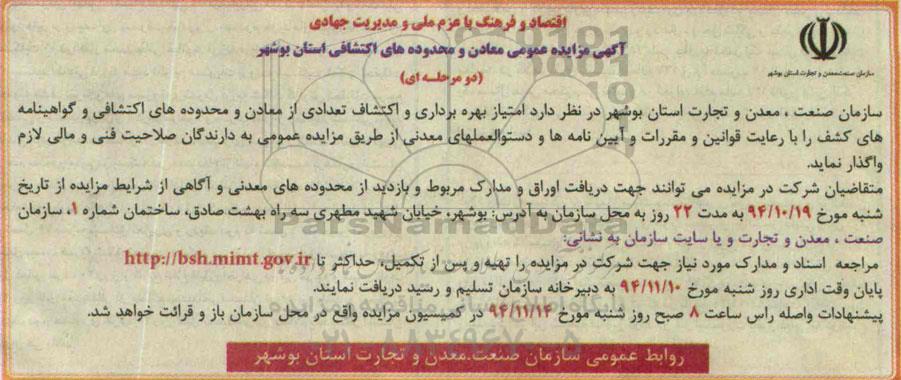 اقتصاد و فرهنگ با عزم ملی و مدیریت جهادی
آگهی مزایده عمومی معادن و محدوده های اکتشافی استان بوشهر
(دو مرحله ای)
سازمان صنعت،معدن و تجارت استان بوشهر
سازمان صنعت ، معدن و تجارت استان بوشهر در نظر دارد امتیاز بهره برداری و اکتشاف تعدادی از معادن و محدوده های اکتشافی و گواهینامه
های کشف را با رعایت قوانین و مقررات و آیین نامه ها و دستوالعملهای معدنی از طریق مزایده عمومی به دارندگان صلاحیت فنی و مالی لازم
واگذار نماید.
متقاضیان شرکت در مزایده می توانند جهت دریافت اوراق و مدارک مربوط و بازدید از محدوده های معدنی و آگاهی از شرایط مزایده از تاریخ
شنبه مورخ ۹۴/۱۰/۱۹ به مدت ۲۲ روز به محل سازمان به آدرس: بوشهر، خیابان شهید مطهری سه راه بهشت صادق، ساختمان شماره ۱، سازمان
صنعت ، معدن و تجارت و یا سایت سازمان به نشانی:
http://bsh.mimt.gov.ir مراجعه اسناد و مدارک مورد نیاز جهت شرکت در مزایده را تهیه و پس از تکمیل، حداکثر تا
پایان وقت اداری روز شنبه مورخ ۹۴/۱۱/۱۰ به دبیرخانه سازمان تسلیم و رسید دریافت نمایند.
پیشنهادات واصله راس ساعت ۸ صبح روز شنبه مورخ ۹۴/۱۱/۱۴ در کمیسیون مزایده واقع در محل سازمان باز و قرائت خواهد شد.
روابط عمومی سازمان صنعت.معدن و تجارت استان بوشهر
ParsNamadData